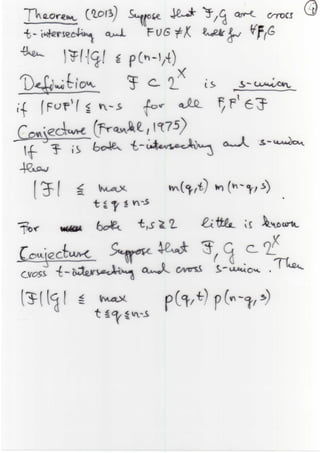 Theorem (2013) Suppose that F, G are cross
t-intersecting and F∪G≠X holds for ∀F,G
then |F||G| ≦ p(n-1,t)
Definition F ⊂ 2^X is s-union
if |F∪F'| ≦ n-s for all F, F' ∈ F
Conjecture (Frankl, 1975)
If F is both t-intersecting and s-union
then
|F| ≦ max m(q,t) m(n-q, s)
t≦q≦n-s
For both t,s≧2 little is known
Conjecture Suppose that F, G ⊂ 2^X
cross t-intersecting and cross s-union. Then
|F||G| ≦ max p(q,t) p(n-q, s)
t≦q≦n-s